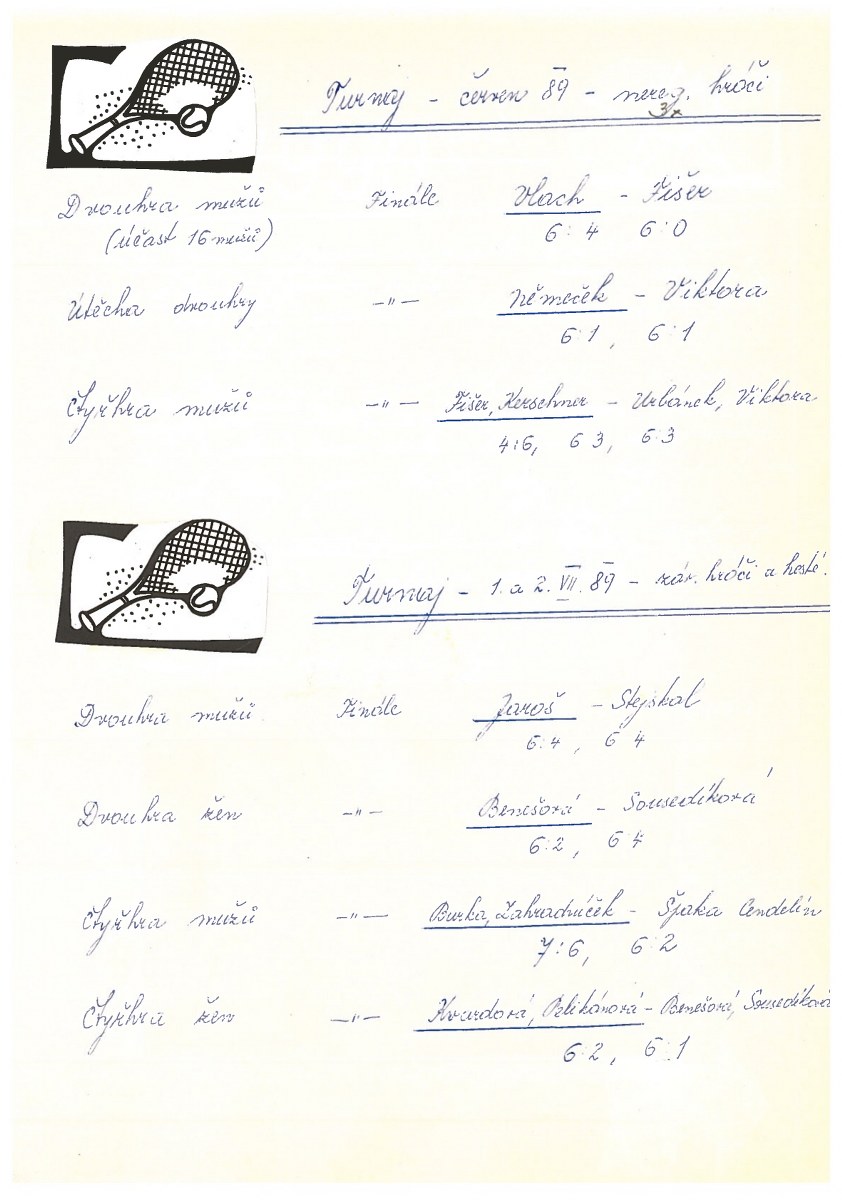 Turnaj - červen 89 - nereg. hráči
3x
Dvouhra mužů Finále Vlach - Fišer
(účast 16 mužů) 6:4 6:0
Útěcha dvouhry -"- Němeček - Viktora
6:1, 6:1
Čtyřhra mužů -"- Fišer, Kerschner - Urbánek, Viktora
4:6, 6 3, 6:3
Turnaj - 1. a 2. VII. 89 - záv. hráči a hosté.
Dvouhra mužů Finále Jaroš - Stejskal
6:4, 6 4
Dvouhra žen -"- Benešová - Sousedíková
6:2, 6 4
Čtyřhra mužů -"- Burka, Zahradníček - Špaka Cendelín
7:6, 6:2
Čtyřhra žen -"- Kvardová, Pelikánová - Benešová, Sousedíková
6:2, 6:1